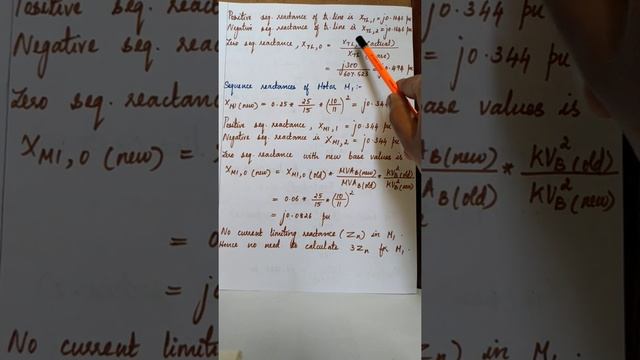 Positive seq. reactance of tr. line is X_TL,1 = j0.1646 pu
Negative seq. reactance of tr. line is X_TL,2 = j0.1646 pu
Zero seq. reactance, X_TL,0 = X_TL (actual)
= j300 / 607.523 = j0.494 pu
Sequence reactances of Motor M1 :-
X_M1 (new) = 0.25 * 25/15 * (10/11)^2 = j0.344
Positive seq. reactance, X_M1,1 = j0.344 pu
Negative seq. reactance is X_M1,2 = j0.344 pu
Zero seq. reactance with new base values is
X_M1,0 (new) = X_M1,0 (old) * MVA_B(new)/MVA_B(old) * KV_B^2(old)/KV_B^2(new)
= 0.06 * 25/15 * (10/11)^2
= j0.0826 pu
No current limiting reactance (Zn) in M1.
Hence no need to calculate 3Zn for M1.